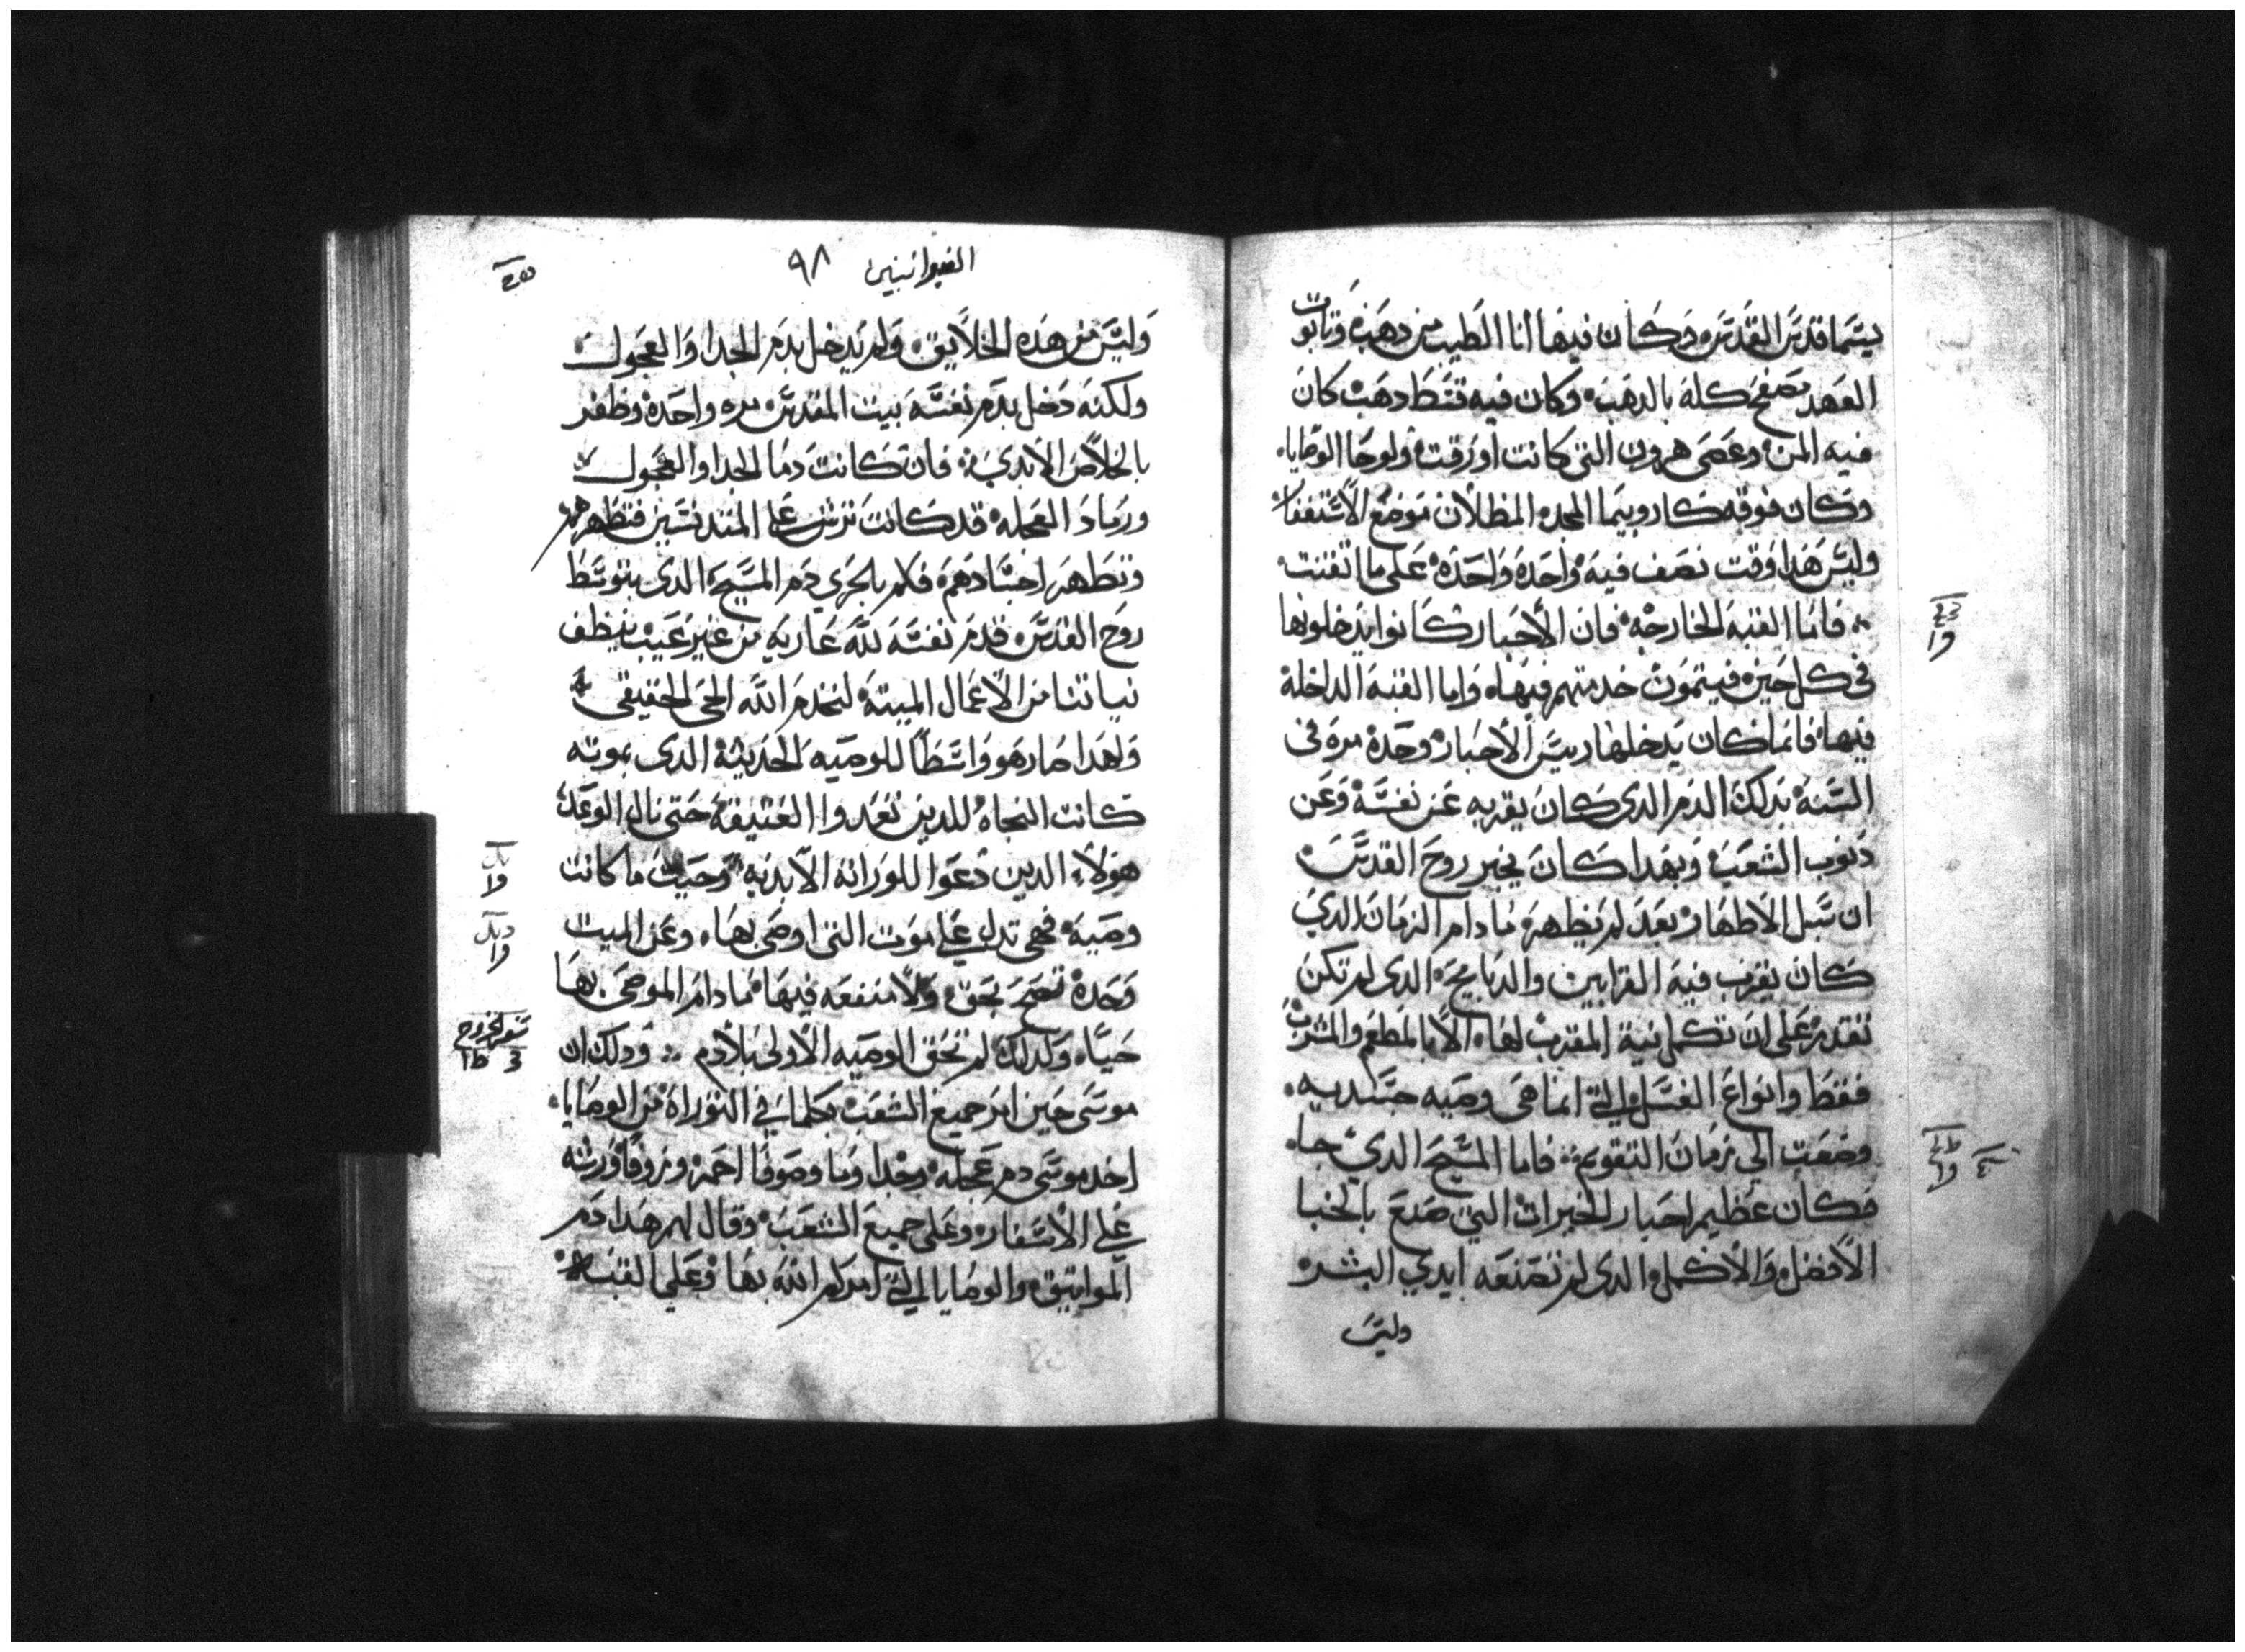 يسما قدس القدس وكان فيها انا الطيب من دهب وتابوت
العهد مصفح كله بالدهب وكان فيه قسط دهب كان
فيه المن وعصى هرون التى كانت اورقت ولوحا الوصايا
وكان فوقه كاروبيما المجد المظلان موضع الاستغفار
وليس هدا وقت نصف فيه واحده واحده على ما اتقنت
فاما القبه الخارجه فان الأحبار كانوا يدخلونها
فى كل حين فيتمون خدمتهم فيها واما القبه الداخلة
فيها فانما كان يدخلها ريس الأحبار وحده مرة فى
السنه بدلك الدم الدى كان يقربه عن نفسه وعن
دنوب الشعب وبهدا كان يخبر روح القدس
ان سبل الاطهار بعد لم يظهر ما دام الزمان الدي
كان يقرب فيه القرابين والدبايح الدى لم تكن
تقدر على ان تكمل نية المقرب لها الا بالمطعم والمشرب
فقط وانواع الغسل التي انما هى وصيه جسديه
وضعت الي زمان التقويم فاما المسيح الدي جا
فكان عظيم احبار الخيرات التي صنع بالخبا
الأفضل والأكمل الدى لم تصنعه ايدي البشر
وليس
العبرانيين ٩٨
وليس من هده الخلايق ولم يدخل بدم الجدا والعجول
ولكنه دخل بدم نفسه بيت المقدس مره واحدة وظفر
بالخلاص الأبدي فان كانت دما الجدا والعجول
ورماد العجله قد كانت ترش على المتدنسين فتطهرهم
وتطهر اجسادهم فكم بالحري دم المسيح الدى بتوسط
روح القدس قدم نفسه لله عاريه من غير عيب ينظف
نياتنا من الأعمال الميته لنخدم الله الحى الحقيقى
ولهدا صار هو واسطا للوصيه الحديثه الدى بموته
كانت النجاه للدين تعدوا العتيقة حتى نال الوعد
هولاء الدين دعوا للوراثه الأبديه وحيث ما كانت
وصية فهى تدل على موت التى اوصى بها وعن الميت
وحدة تصح بحق ولا منفعه فيها ما دام الموصى بها
حيا وكدلك لم تحق الوصيه الأولى بلا دم ودلك ان
موسى حين امر جميع الشعب بكلما في التوراة من الوصايا
اخد موسى دم عجله وجدا وما وصوفا احمر وزوفا ورشه
على الأسفار وعلى جميع الشعب وقال لهم هدا دم
المواتيق والوصايا التي امركم الله بها وعلى القبه
سفر الخروج